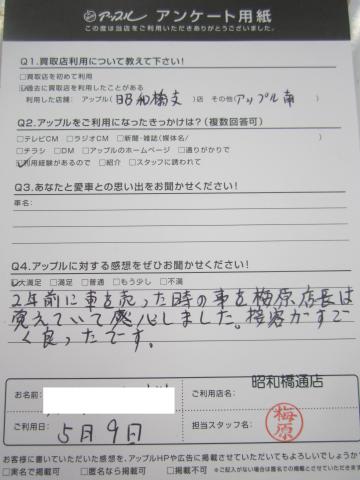 アップル アンケート用紙
この度は当店をご利用いただきありがとうございました。
Q1.買取店利用について教えて下さい!
□買取店を初めて利用
☑過去に買取店を利用したことがある
利用した店舗: アップル(昭和橋支)店 その他(アップル南)
Q2.アップルをご利用になったきっかけは?(複数回答可)
□テレビCM □ラジオCM □新聞・雑誌(媒体名/ )
□チラシ □DM □アップルのホームページ □通りがかりで
☑利用経験があるので □紹介 □スタッフに誘われて
Q3.あなたと愛車との思い出をお聞かせください!
車名:
Q4.アップルに対する感想をぜひお聞かせください!
☑大満足 □満足 □普通 □もう少し □不満
2年前に車を売った時の事を梅原店長は
覚えていて感心しました。接客がすご
く良ったです。
お名前:
ご利用店名: 昭和橋通店
ご利用日: 5月9日
担当スタッフ名: 梅原
お客様に書いていただいた感想を、アップルHPや広告に掲載させていただいてもよろしいでしょうか?
□実名で掲載可 □匿名なら掲載可 □掲載不可